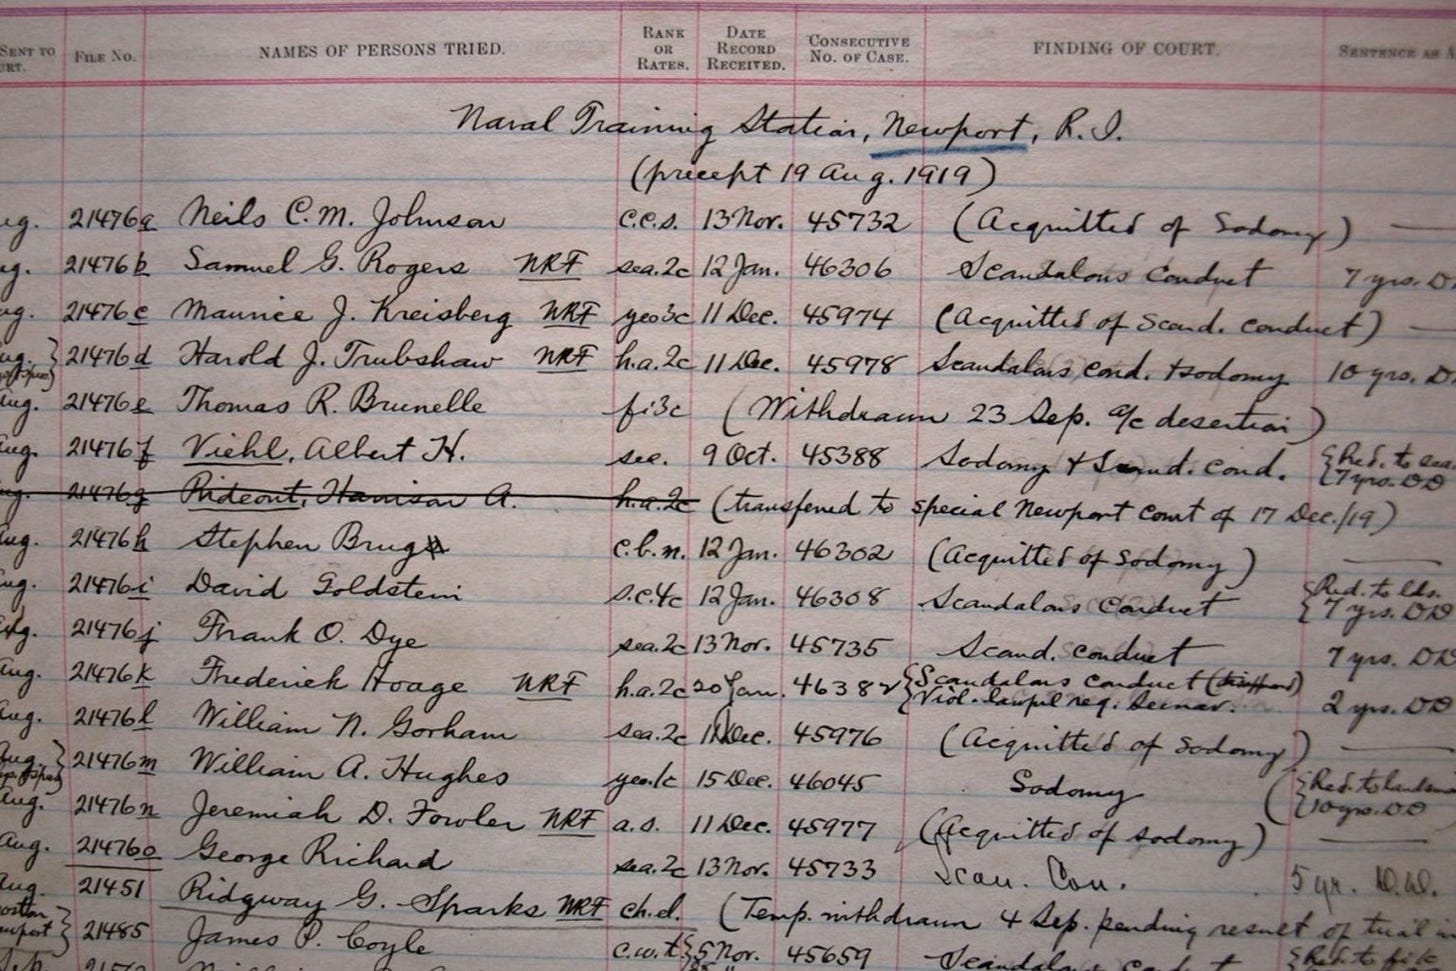 SENT TO
URT. FILE NO. NAMES OF PERSONS TRIED. RANK OR RATES. DATE RECORD RECEIVED. CONSECUTIVE NO. OF CASE. FINDING OF COURT. SENTENCE AS A
Naval Training Station, Newport, R.I.
(precept 19 Aug. 1919)
ug. 21476a Neils C.M. Johnson c.c.s. 13 Nov. 45732 (Acquitted of Sodomy) —
ug. 21476b Samuel G. Rogers NRF sea.2c 12 Jan. 46306 Scandalous conduct 7 yrs. D
ug. 21476c Maurice J. Kreisberg NRF yeo3c 11 Dec. 45974 (Acquitted of Scand. conduct) —
ug. 21476d Harold J. Trubshaw NRF h.a.2c 11 Dec. 45978 Scandalous cond. & sodomy 10 yrs. D
ug. 21476e Thomas R. Brunelle fi3c (Withdrawn 23 Sep. a/c desertion)
Aug. 21476f Viehl, Albert H. sec. 9 Oct. 45388 Sodomy & Scand. cond. {Red. to sea {7 yrs. DD
ug. 21476g Rideout, Harrison A. h.a.2c (transferred to special Newport Court of 17 Dec./19)
ug. 21476h Stephen Brugs c.b.n. 12 Jan. 46302 (Acquitted of Sodomy) —
ug. 21476i David Goldstein s.c.4c 12 Jan. 46308 Scandalous Conduct {Red. to lds. {7 yrs. DD
21476j Frank O. Dye sea.2c 13 Nov. 45735 Scand. conduct 7 yrs. DD
Aug. 21476k Frederick Hoage NRF h.a.2c 20 Jan. 46382 {Scandalous conduct {Viol. lawful reg. Secnav. 2 yrs. DD
Aug. 21476l William N. Gorham sea.2c 11 Dec. 45976 (Acquitted of Sodomy) —
Aug. } 21476m William A. Hughes yeo.1c 15 Dec. 46045 Sodomy {Red. to landsm {10 yrs. DD
Aug. 21476n Jeremiah D. Fowler NRF a.s. 11 Dec. 45977 (Acquitted of sodomy) —
Aug. 21476o George Richard sea.2c 13 Nov. 45733 Scan. Con. 5 yr. D.D.
Aug. 21451 Ridgway G. Sparks NRF ch.el. (Temp. withdrawn 4 Sep. pending result of trial in
oston wport } 21485 James P. Coyle c.w.t. 5 Nov. 45659 Scandalous {Red. to fi
Sep.